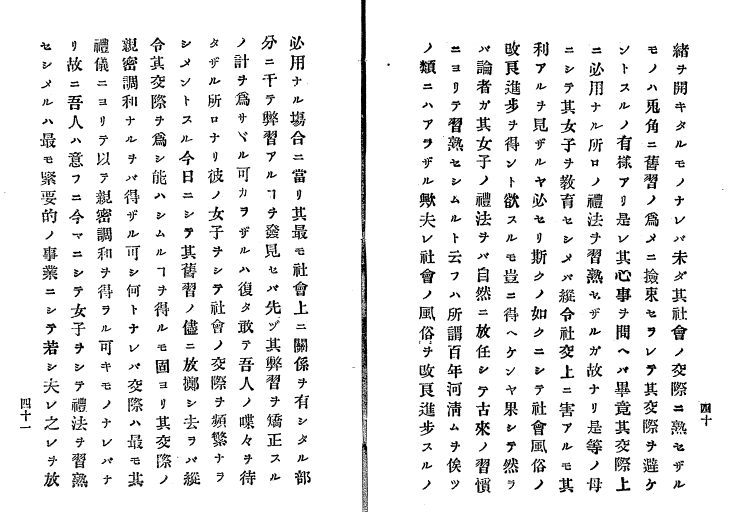 緒ヲ開キタルモノナレバ未ダ其社會ノ交際ニ熟セザル
モノハ兎角ニ舊習ノ爲メニ撿束セラレテ其交際ヲ避ケ
ントスルノ有樣アリ是レ其心事ヲ問ヘバ畢竟其交際上
ニ必用ナル所ロノ禮法ヲ習熟セザルガ故ナリ是等ノ母
ニシテ其女子ヲ教育セシメバ縱令社交上ニ害アルモ其
利アルヲ見ザルヤ必セリ斯クノ如クニシテ社會風俗ノ
改良進歩ヲ得ント欲スルモ豈ニ得ヘケンヤ果シテ然ラ
バ論者ガ其女子ノ禮法ヲバ自然ニ放任シテ古來ノ習慣
ニヨリテ習熟セシムルト云フハ所謂百年河淸ムヲ俟ツ
ノ類ニハアラザル歟夫レ社會ノ風俗ヲ改良進歩スルノ
四十
必用ナル塲合ニ當リ其最モ社會上ニ關係ヲ有シタル部
分ニ干テ弊習アルヿヲ發見セバ先ヅ其弊習ヲ矯正スル
ノ計ヲ爲サヾル可カラザルハ復タ敢テ吾人ノ喋々ヲ待
タザル所ロナリ彼ノ女子ヲシテ社會ノ交際ヲ頻繁ナラ
シメントスル今日ニシテ其舊習ノ儘ニ放擲シ去ラバ縱
令其交際ヲ爲シ能ハシムルヿヲ得ルモ固ヨリ其交際ノ
親密調和ナルヲバ得ザル可シ何トナレバ交際ハ最モ其
禮儀ニヨリテ以テ親密調和ヲ得ラル可キモノナレバナ
リ故ニ吾人ハ意フニ今マニシテ女子ヲシテ禮法ヲ習熟
セシメルハ最モ緊要的ノ事業ニシテ若シ夫レ之レヲ放
四十一